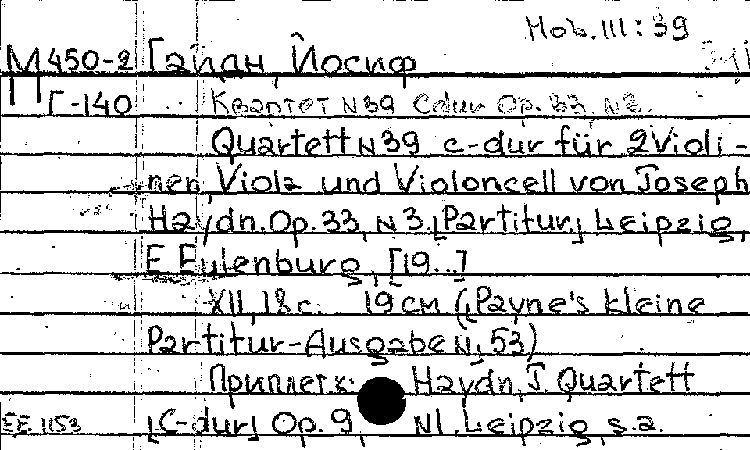 Hob. III: 39
М 450-2 Гайдн, Йосиф
Г-140 Квартет N39 Cdur Op. 33, N2.
Quartett N39 c-dur für 2 Violi-
nen, Viola und Violoncell von Joseph
Haydn. Op. 33, N 3. [Partitur] Leipzig,
E. Eulenburg, [19...]
XII, 18 c. 19 см (Payne's kleine
Partitur-Ausgabe N, 53)
Приплет к: Haydn, J. Quartett
[C-dur] Op. 9, N1. Leipzig, s.a.
EE 1153